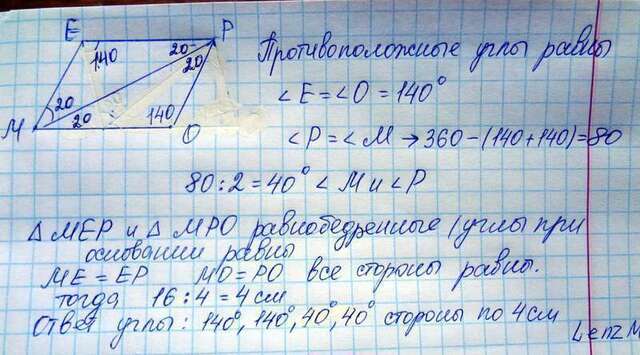 E 140 20 P
20
20 20 140
M O
Противоположные углы равны
<E = <O = 140°
<P = <M → 360 - (140 + 140) = 80
80 : 2 = 40° < M и < P
△ MEP и △ MPO равнобедренные (углы при
основании равны
ME = EP MO = PO все стороны равны.
тогда 16 : 4 = 4 см
Ответ углы: 140°, 140°, 40°, 40° стороны по 4 см
LenzM